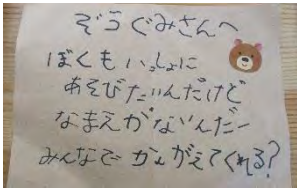 ぞうぐみさんへ
ぼくもいっしょに
あそびたいんだけど
なまえがないんだー
みんなで かんがえてくれる?